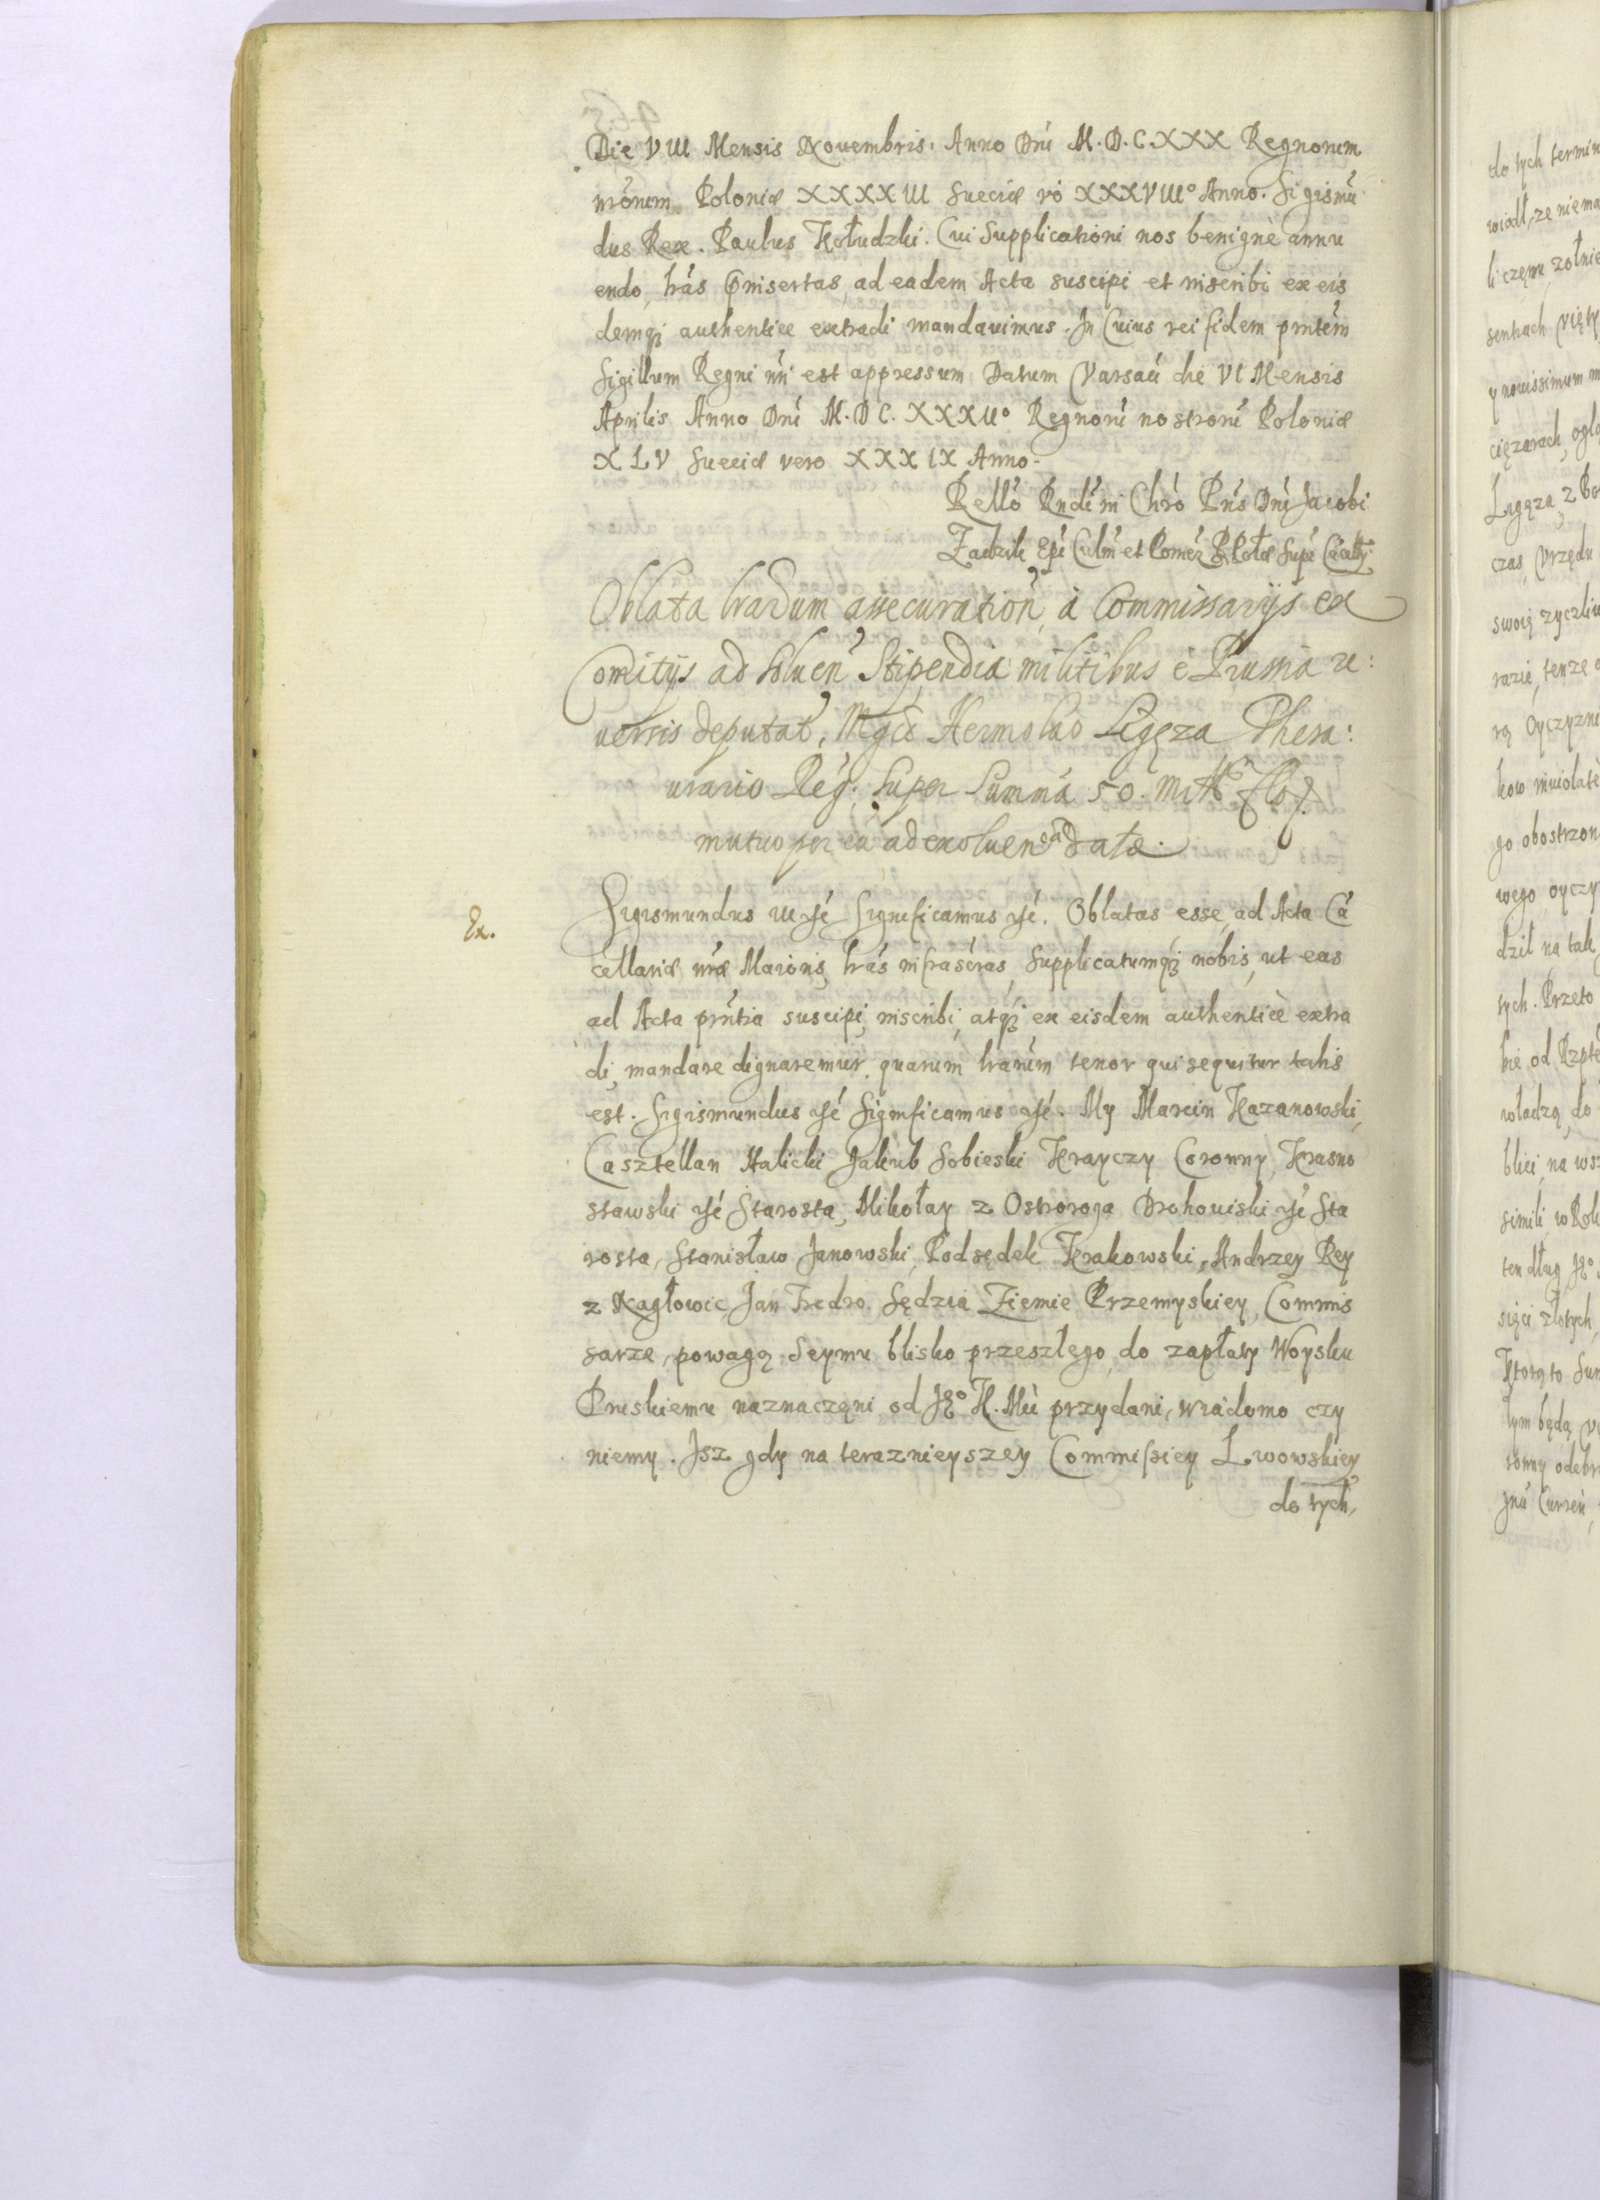 Die VIII Mensis Nouembris. Anno Dni M.D.C.XXX Regnorum
nrorum Poloniæ XXXXIII Sueciæ vo XXXVIIIo Anno. Sigismu
dus Rex. Paulus Kołudzki. Cui Supplicationi nos benignè annu
endo, lras insertas, ad eadem Acta suscipi et inscribi ex eis
demq; authentice extradi mandauimus. In Cuius rei fidem pntem
Sigillum Regni nri est appressum Datum Varsau die VI Mensis
Aprilis Anno Dni M.DC.XXXIIo Regnoru nostroru Poloniæ
XLV Sueciæ vero XXXIX Anno.
Rello Rndi in Chro Pris Dni Jacobi
Zadzik Epi Culm et Pomez Supr Cacell
Oblata lrarum assecuration, à Commissarijs ex
Comitijs ad soluen Stipendia militibus è Prussia re:
uersis deputat, Mgco Hermolao Ligęza Thesa:
urario Reg: super Summa 50. mill
mutuo per eu ad exoluen da data.
Ex.
Sigismundus III etc Significamus etc. Oblatas esse, ad Acta Ca
cellariæ nræ Maioris, lras infrascras, Supplicatumq; nobis, ut eas
ad Acta pntia suscipi, inscribi, atq; ex eisdem authenticè extra
di, mandare dignaremur. quarum lrarum tenor qui sequitur talis
est. Sigismundus etc Significamus etc. My Marcin Kazanowski,
Casztellan Halicki Jakub Sobieski Krayczy Coronny, Krasno
stawski etc Starosta, Mikołay z Ostroroga Drohouiski etc Sta
rosta, Stanisław Janowski, Podsędek Krakowski, Andrzey Rey
z Nagłowic, Jan Fredro Sędzia Ziemie Przemyskiey, Commis
sarze, powagą Seymu blisko przeszłego, do zapłaty Woysku
Pruskiemu naznaczęni, od Jego K. Mci przydani, wiadomo czy
niemy. Isz gdy na teraznieyszey Commissiey Lwowskiey,
do tych,
do tych termin
widł, ze niema
li częmu, żołnie
sentach
y nouissimum m
ciężarach, ogla
Ligęza, z Bo
czas, Vrzędu
swoię zyczliw
razie, tenze
rą Oyczyzni
kow inuiolate
go obostrzon
wego, oyczy
dził, na tak
tych. Przeto
bie od Rzpte
władzą, do
blici, na wsz
simili w Rok
ten dług Jego
sięci złotych,
Ktorą to Sum
tym będą,
ronny odebr